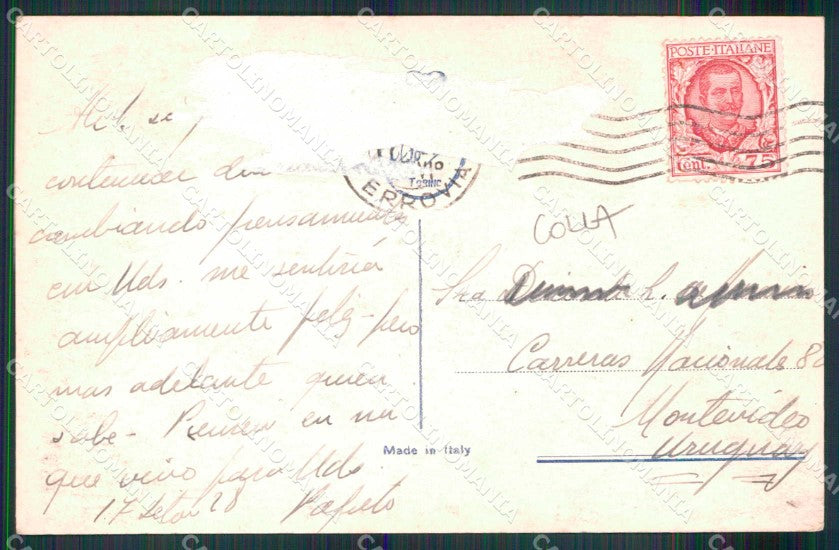 POSTE·ITALIANE
75
TORINO
ERROVIA
COLLA
Ah! si
contenida
cambiando pensamientos
con Uds. me sentiria
ampliamente feliz - pero
mas adelante quien
sabe - Piensen en mi
que vivo para Uds
17 Set 28
Sra
Carreras Nacionales 80
Montevideo
Uruguay
Made in Italy
CARTOLINOMANIA